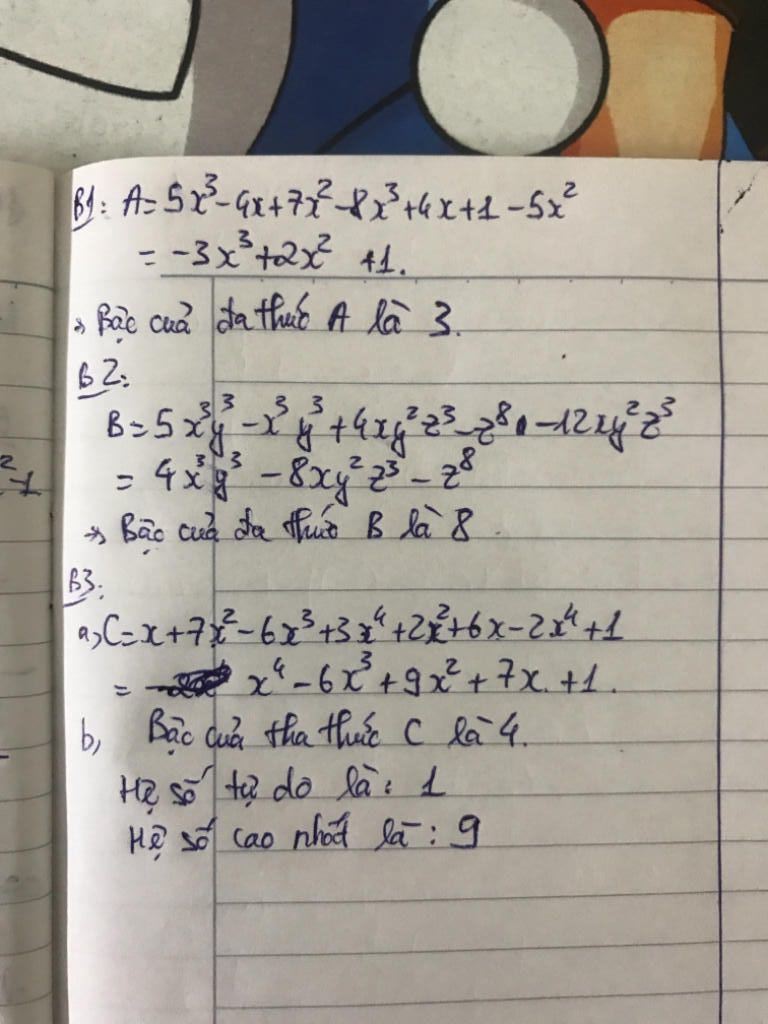 B1: A = 5x³ - 4x + 7x² - 8x³ + 4x + 1 - 5x²
= -3x³ + 2x² + 1.
→ Bậc cuả đa thức A là 3.
B2:
B = 5x³y³ - x³y³ + 4xy²z³ - z⁸ - 12xy²z³
= 4x³y³ - 8xy²z³ - z⁸
²-1
→ Bậc cuả đa thức B là 8.
B3:
a, C = x + 7x² - 6x³ + 3x⁴ + 2x² + 6x - 2x⁴ + 1
= x⁴ - 6x³ + 9x² + 7x. + 1.
b, Bậc cuả tha thức C là 4.
Hệ số tự do là: 1
Hệ số cao nhất là: 9